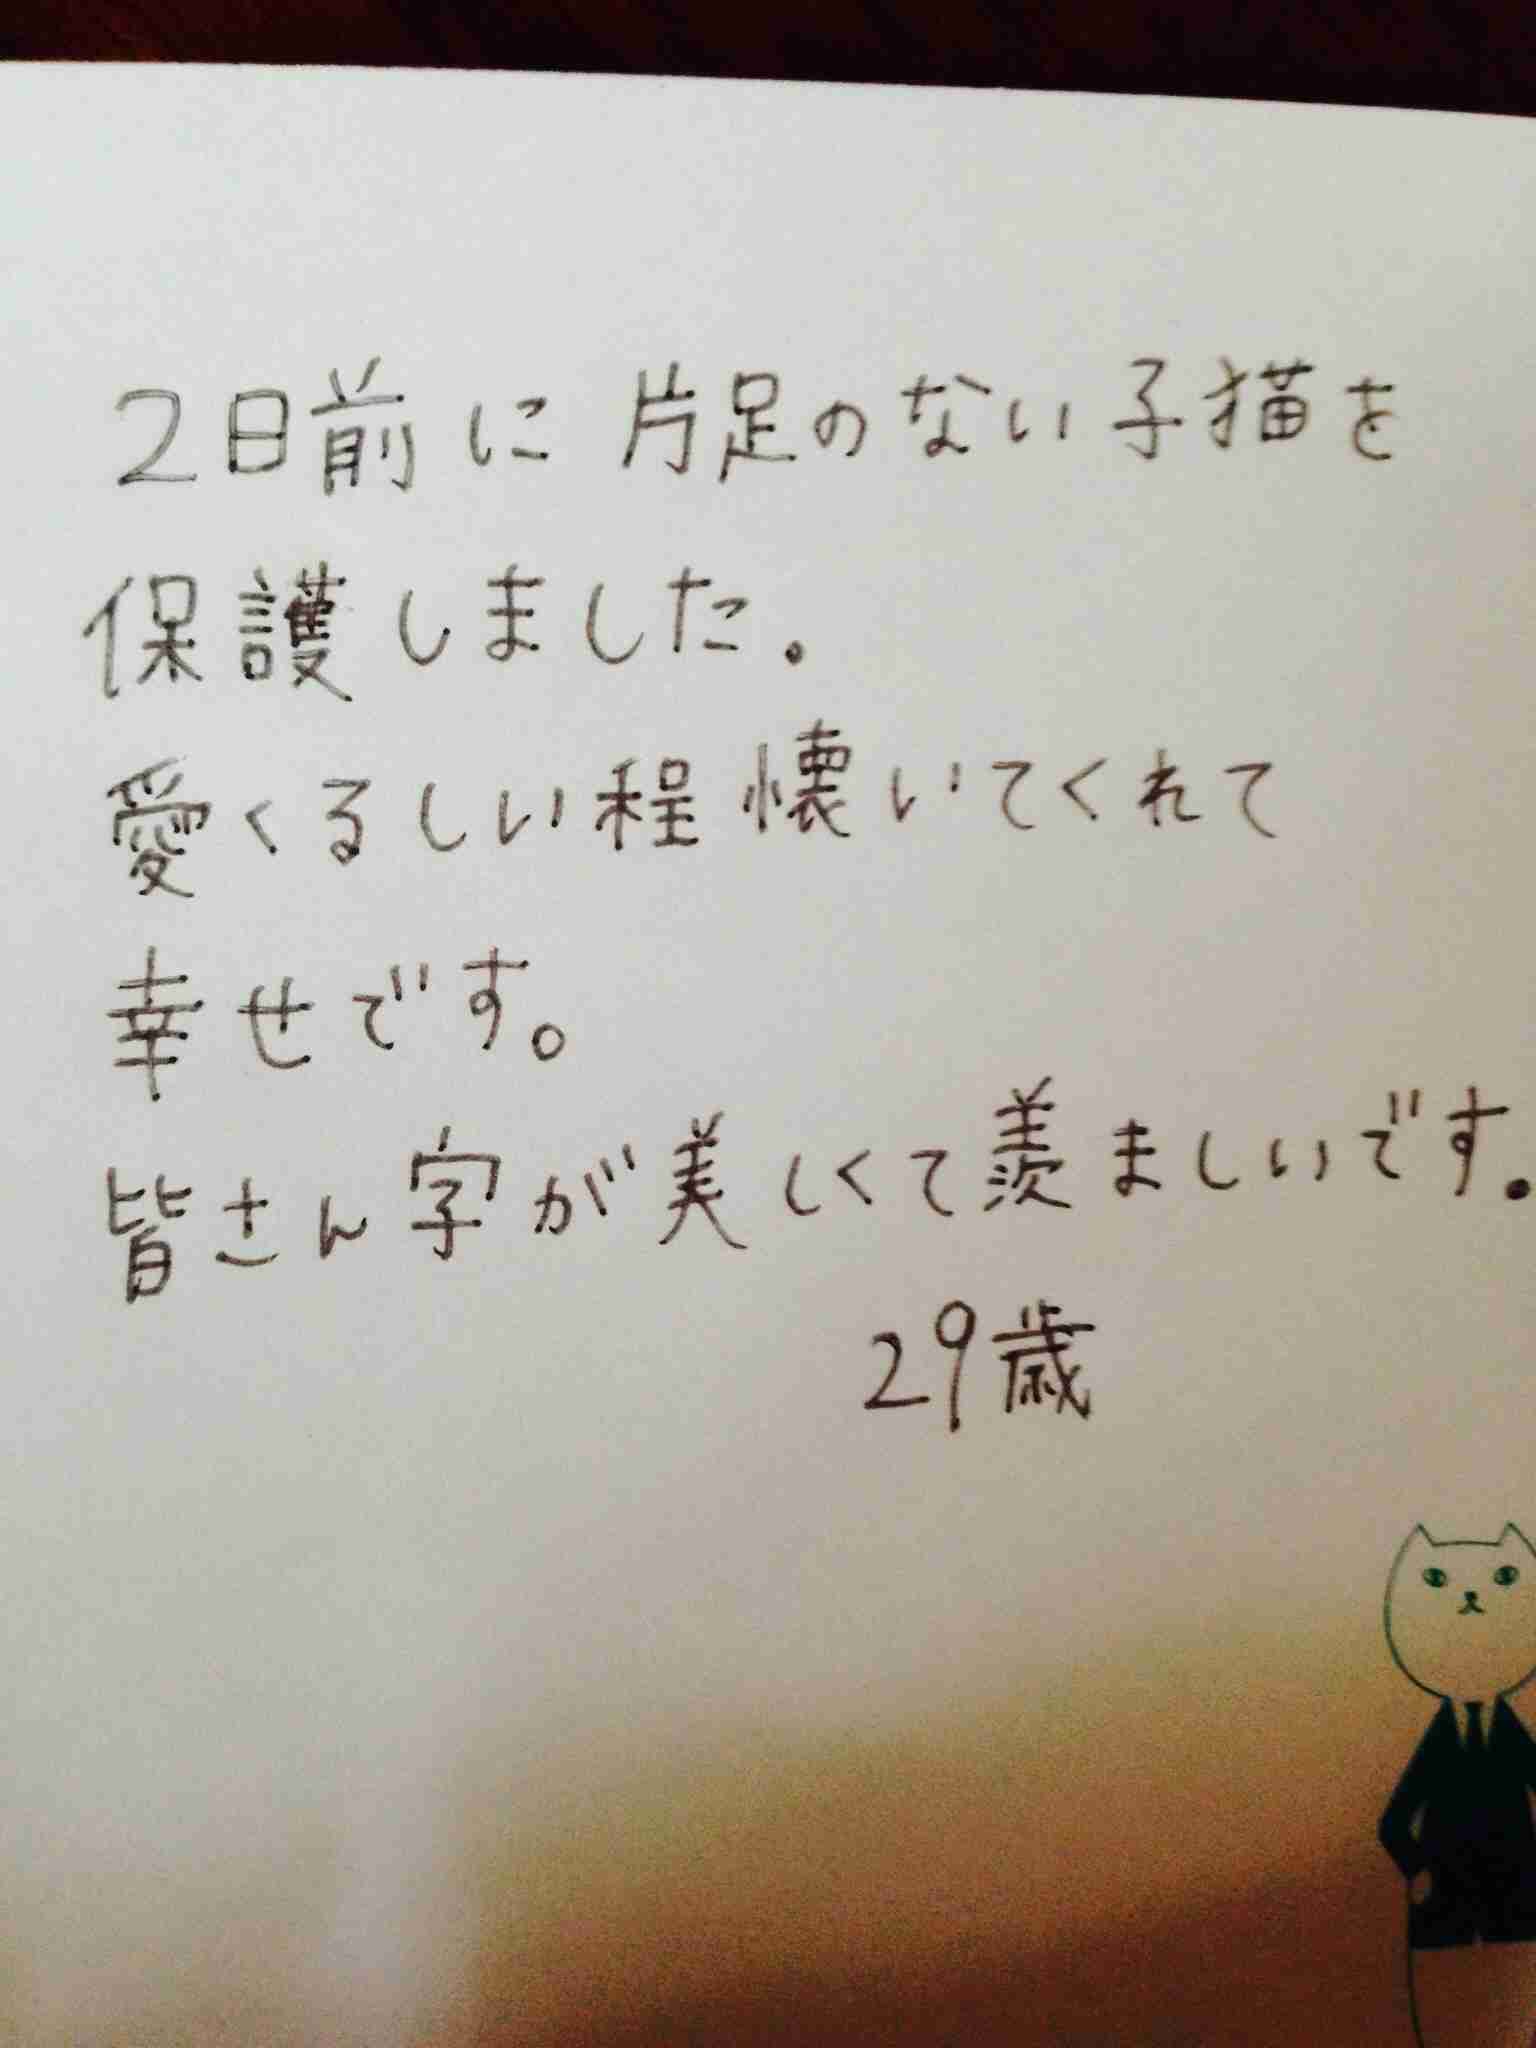 2日前に片足のない子猫を
保護しました.
愛くるしい程懐いてくれて
幸せです。
皆さん字が美しくて羨ましいです.
29歳